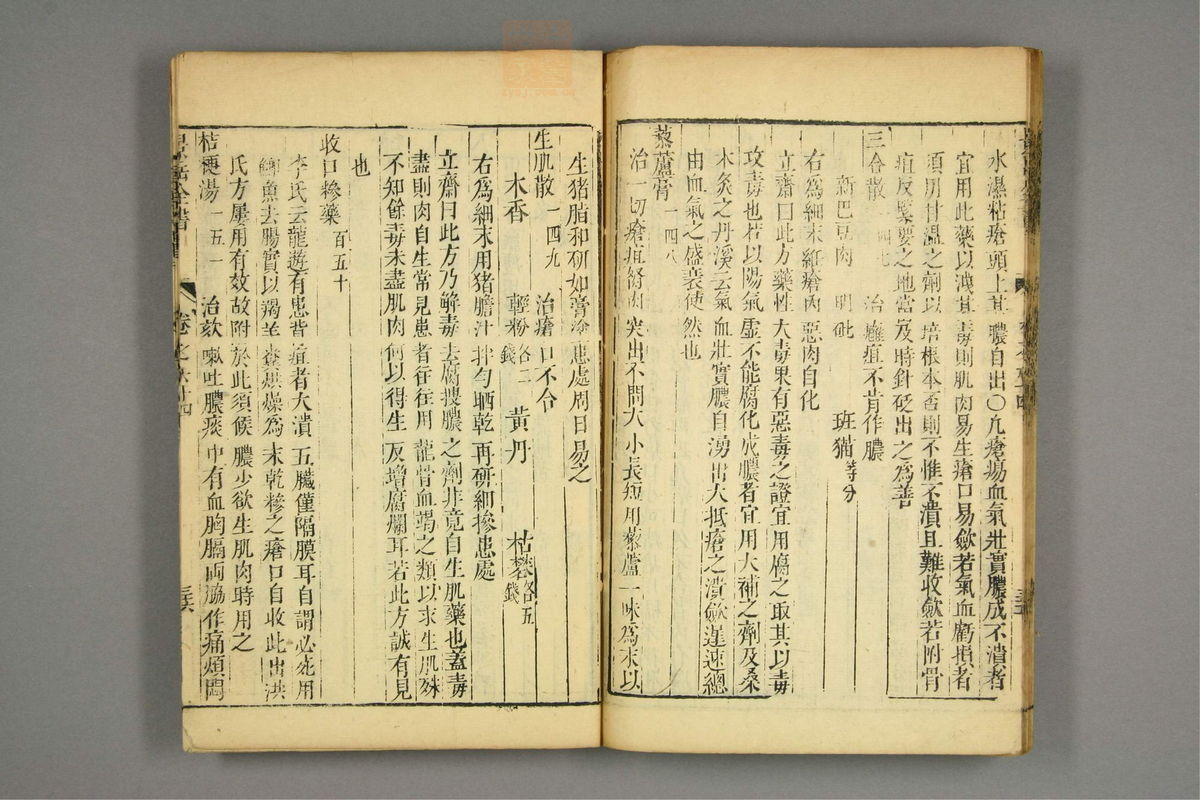 水濕粘瘡頭上其膿自出〇凡瘡瘍血氣壯實膿成不潰者
宜用此藥以潰其毒則肌肉易生瘡口易斂若氣血虧損者
須用甘溫之劑以培根本否則不惟不潰且難收斂若附骨
疽及緊要之地當及時針砭出之為善
三合散 一四七 治癰疽不肯作膿
新巴豆肉 明砒 斑猫等分
右為細末紙瘡內惡肉自化
立齋曰此方藥性大毒果有惡毒之證宜用腐之取其以毒
攻毒也若以陽氣虛不能腐化成膿者宜用大補之劑及桑
木灸之丹溪云氣血壯實膿自湧出大抵瘡之潰斂遲速總
由血氣之盛衰使然也
藜蘆膏 一四八
治一切瘡疽胬肉突出不問大小長短用藜蘆一味為末以
生猪脂和研如膏塗患處周日易之
生肌散 一四九 治瘡口不合
木香 輕粉各二錢 黃丹 枯礬各五錢
右為細末用猪膽汁拌勻晒乾再研細摻患處
立齋曰此方乃解毒去腐搜膿之劑非竟自生肌藥也蓋毒
盡則肉自生常見患者往往用龍骨血竭之類以求生肌殊
不知餘毒未盡肌肉何以得生反增腐爛耳若此方誠有見
也
收口糝藥 百五十
李氏云龍遊有患背疽者大潰五臟僅隔膜耳自謂必死用
鯽魚去腸實以羯羊糞烘燥為末乾糝之瘡口自收此出洪
氏方屢用有效故附於此須候膿少欲生肌肉時用之
桔梗湯 一五一 治欬嗽吐膿痰中有血胸膈兩脇作痛煩悶
景岳全書
卷之六十四
三六